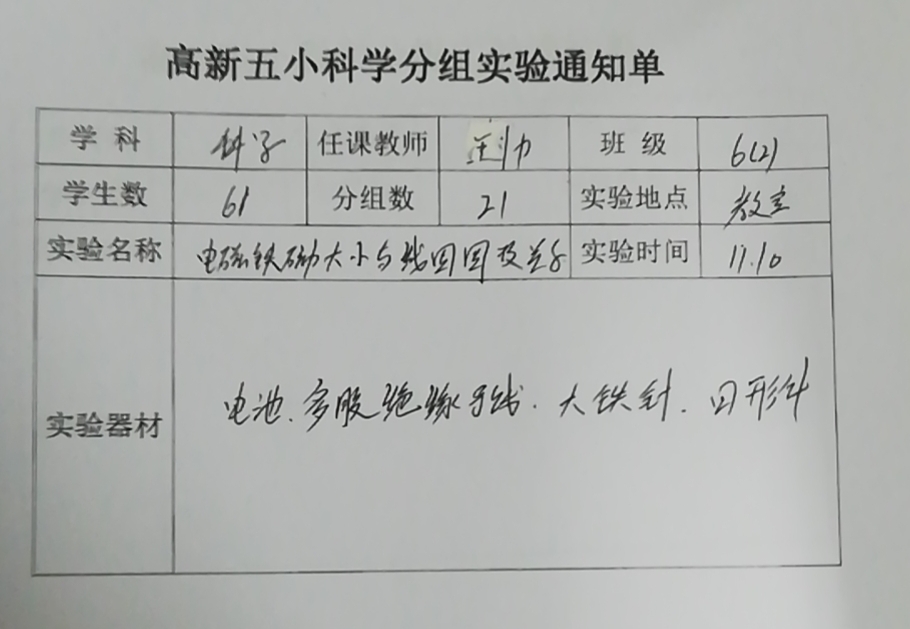 高新五小科学分组实验通知单
学科 科学 任课教师 班级 6(2)
学生数 61 分组数 21 实验地点 教室
实验名称 电磁铁磁力大小与线圈圈数关系 实验时间 11.10
实验器材 电池、多股绝缘导线、大铁钉、回形针